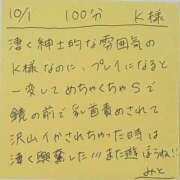 10/1 100分 K様
凄く紳士的な雰囲気の
K様なのに、プレイになると
一変してめちゃくちゃS で
鏡の前で乳首責めされて
沢山イかされちゃった時は
凄く興奮した!!!また遊ぼうね!!
みと